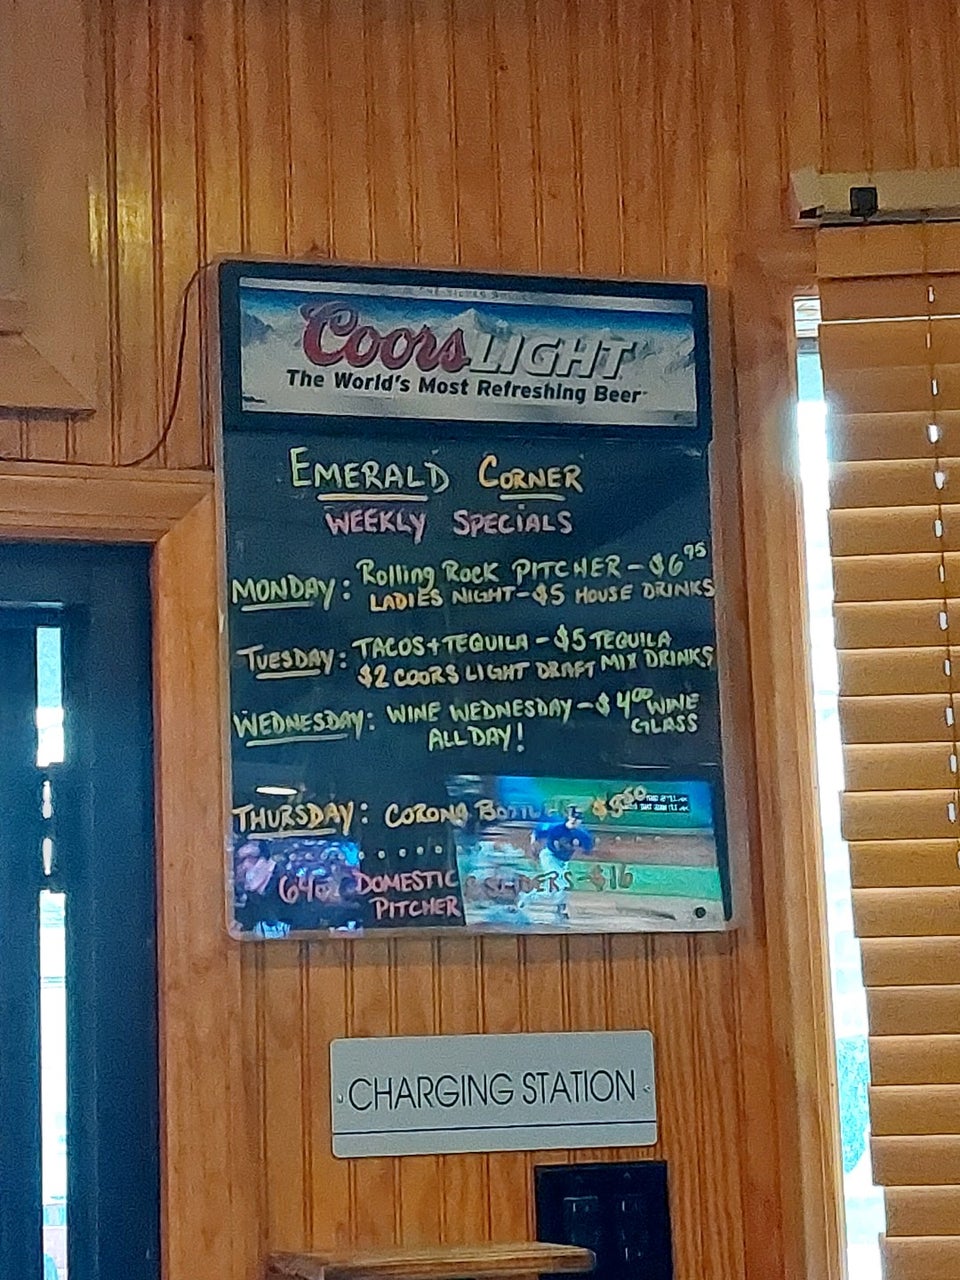 Coors LIGHT
The World's Most Refreshing Beer
EMERALD CORNER
WEEKLY SPECIALS
MONDAY: Rolling Rock PITCHER - $6.95
LADIES NIGHT - $5 HOUSE DRINKS
TUESDAY: TACOS + TEQUILA - $5 TEQUILA
$2 COORS LIGHT DRAFT MIX DRINKS
WEDNESDAY: WINE WEDNESDAY - $4.00 WINE
ALL DAY! GLASS
THURSDAY: CORONA
64oz DOMESTIC - $16
PITCHER
CHARGING STATION